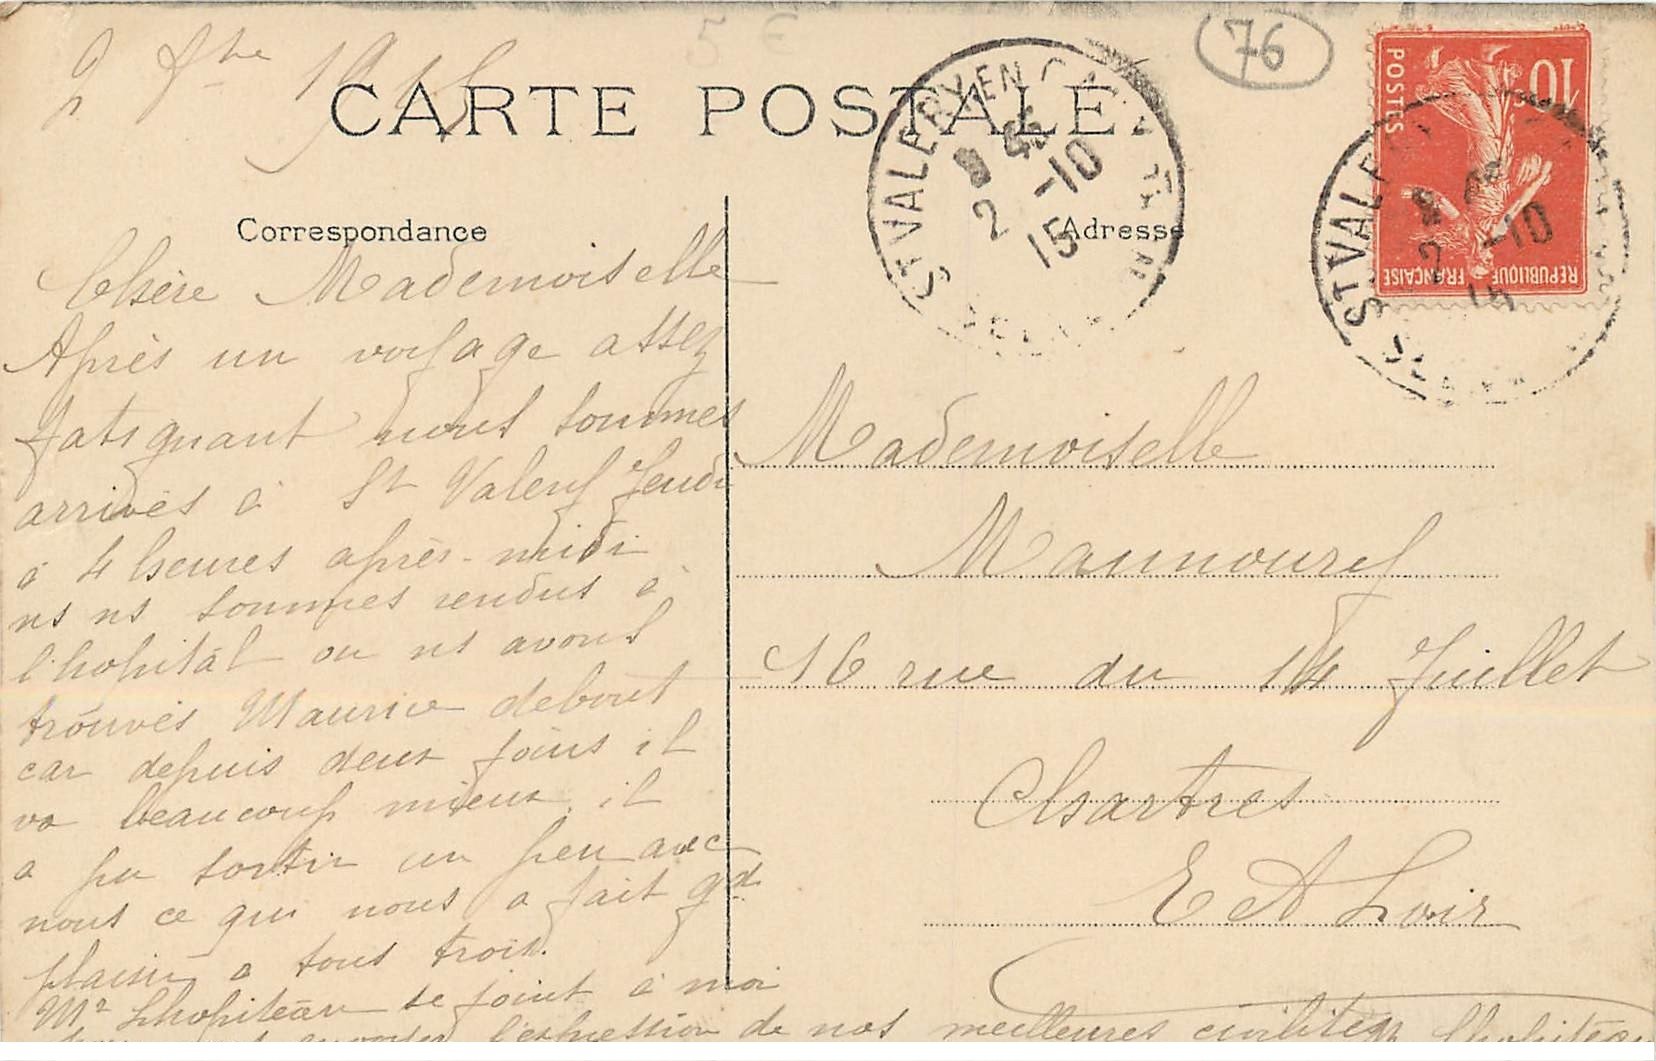 2 8bre 1915
5 €
76
CARTE POSTALE
ST VALERY-EN-CAUX
2 -10
15
POSTES
10c
REPUBLIQUE FRANCAISE
ST VALERY
2 -10
15
Correspondance
Adresse
Chère Mademoiselle
Après un voyage assez
fatiguant nous sommes
arrivés à St Valery Jeudi
à 4 heures après-midi
ns ns sommes rendus à
l'hopital ou ns avons
trouvés Maurice debout
car depuis deux jours il
va beaucoup mieux, il
a pu sortir un peu avec
nous ce qui nous a fait gd
plaisir a tous trois.
Mr Lhopiteau se joint à moi
pour vous envoyer l'expression de nos meilleures civilités Lhopiteau
Mademoiselle
Maunoury
16 rue du 14 Juillet
Chartres
E & Loir